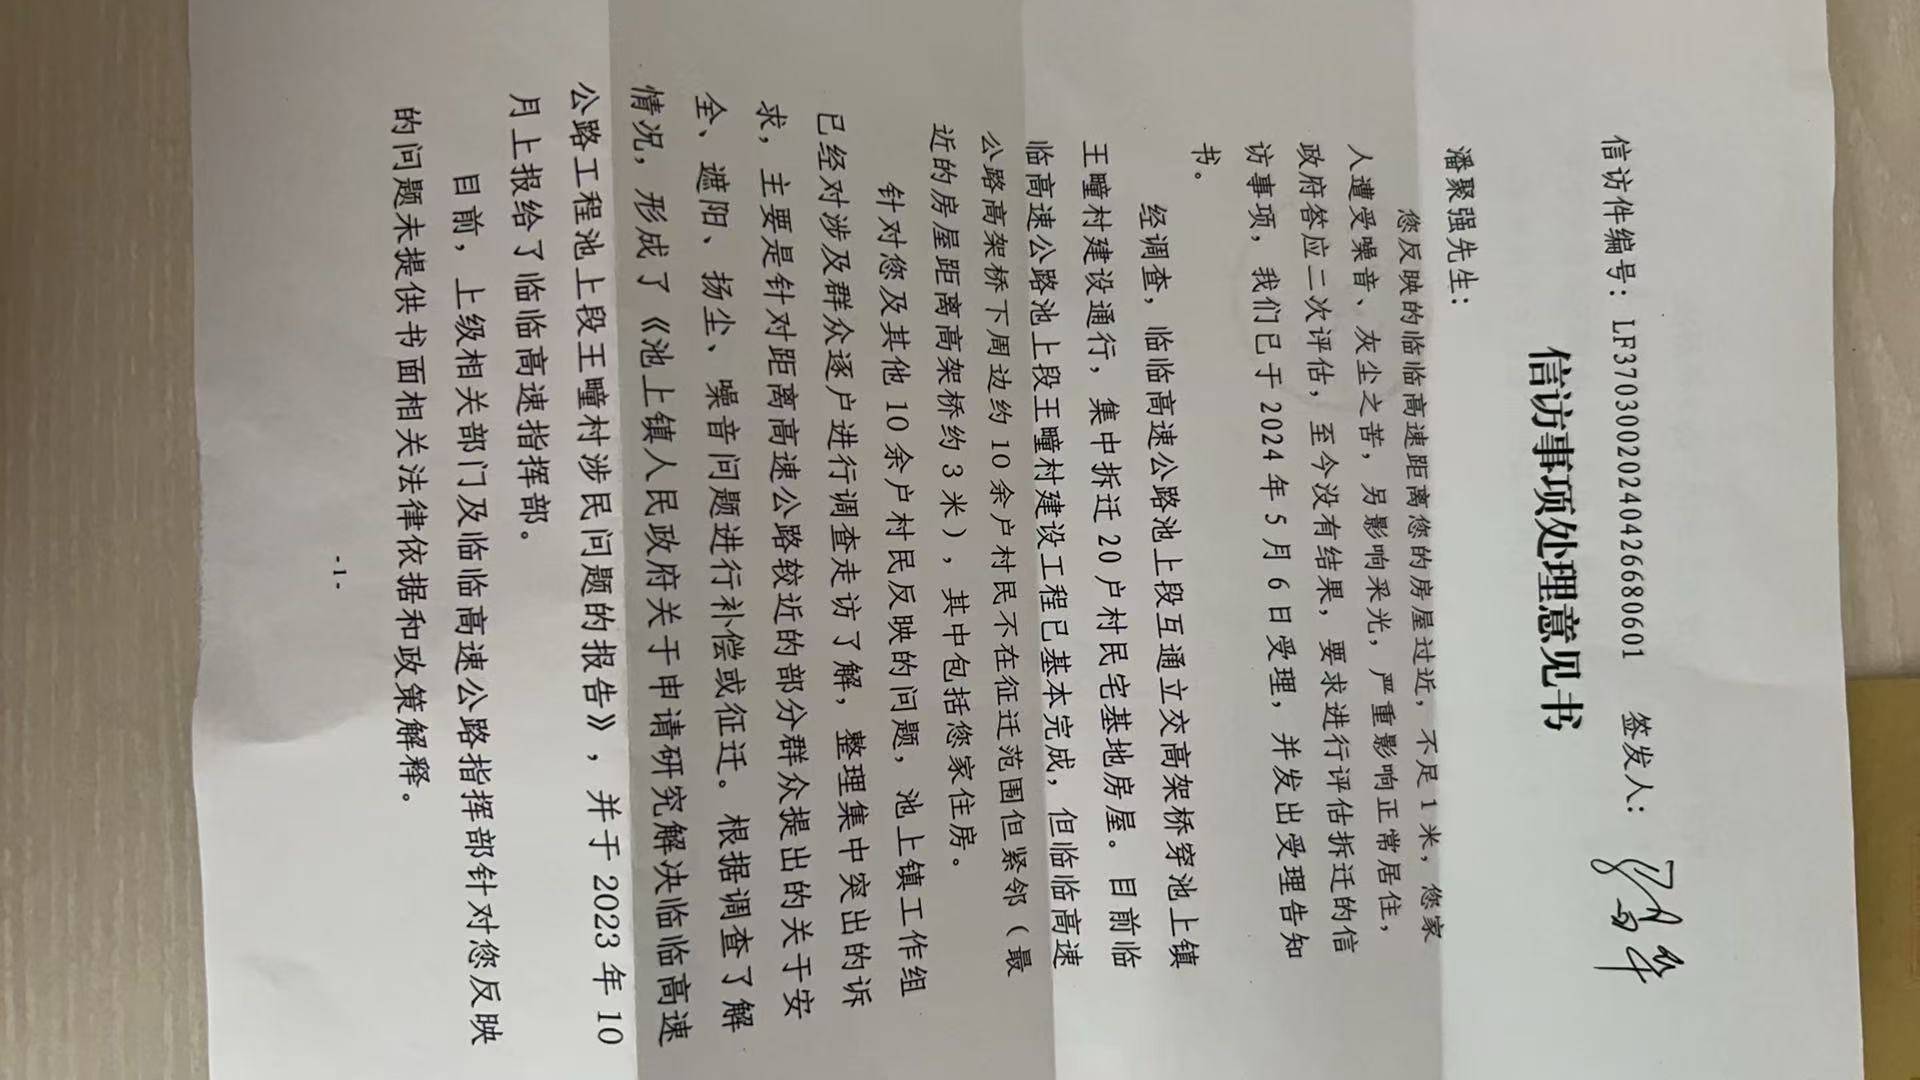 信访件编号：LF370300202404266680601 签发人：
信访事项处理意见书
潘聚强先生：
您反映的临临高速距离您的房屋过近，不足1米，您家
人遭受噪音、灰尘之苦，另影响采光，严重影响正常居住，
政府答应二次评估，至今没有结果，要求进行评估拆迁的信
访事项，我们已于2024年5月6日受理，并发出受理告知
书。
经调查，临临高速公路池上段互通立交高架桥穿池上镇
王疃村建设通行，集中拆迁20户村民宅基地房屋。目前临
临高速公路池上段王疃村建设工程已基本完成，但临临高速
公路高架桥下周边约10余户村民不在征迁范围但紧邻（最
近的房屋距离高架桥约3米），其中包括您家住房。
针对您及其他10余户村民反映的问题，池上镇工作组
已经对涉及群众逐户进行调查走访了解，整理集中突出的诉
求，主要是针对距离高速公路较近的部分群众提出的关于安
全、遮阳、扬尘、噪音问题进行补偿或征迁。根据调查了解
情况，形成了《池上镇人民政府关于申请研究解决临临高速
公路工程池上段王疃村涉民问题的报告》，并于2023年10
月上报给了临临高速指挥部。
目前，上级相关部门及临临高速公路指挥部针对您反映
的问题未提供书面相关法律依据和政策解释。
-1-